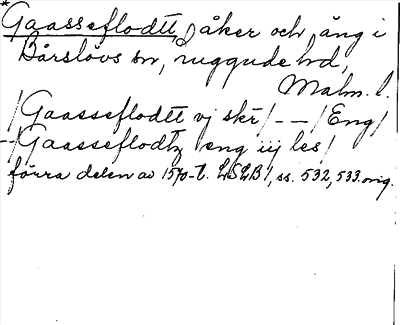 *Gaasseflodtt, åker och äng i
Bårslövs sn, Luggude hd,
Malm. l.
/Gaasseflodtt vj skr/ - - /Eng/
--/Gaasseflodtz eng iij les/
förra delen av 1570-t. LSLB1, ss. 532, 533. orig.